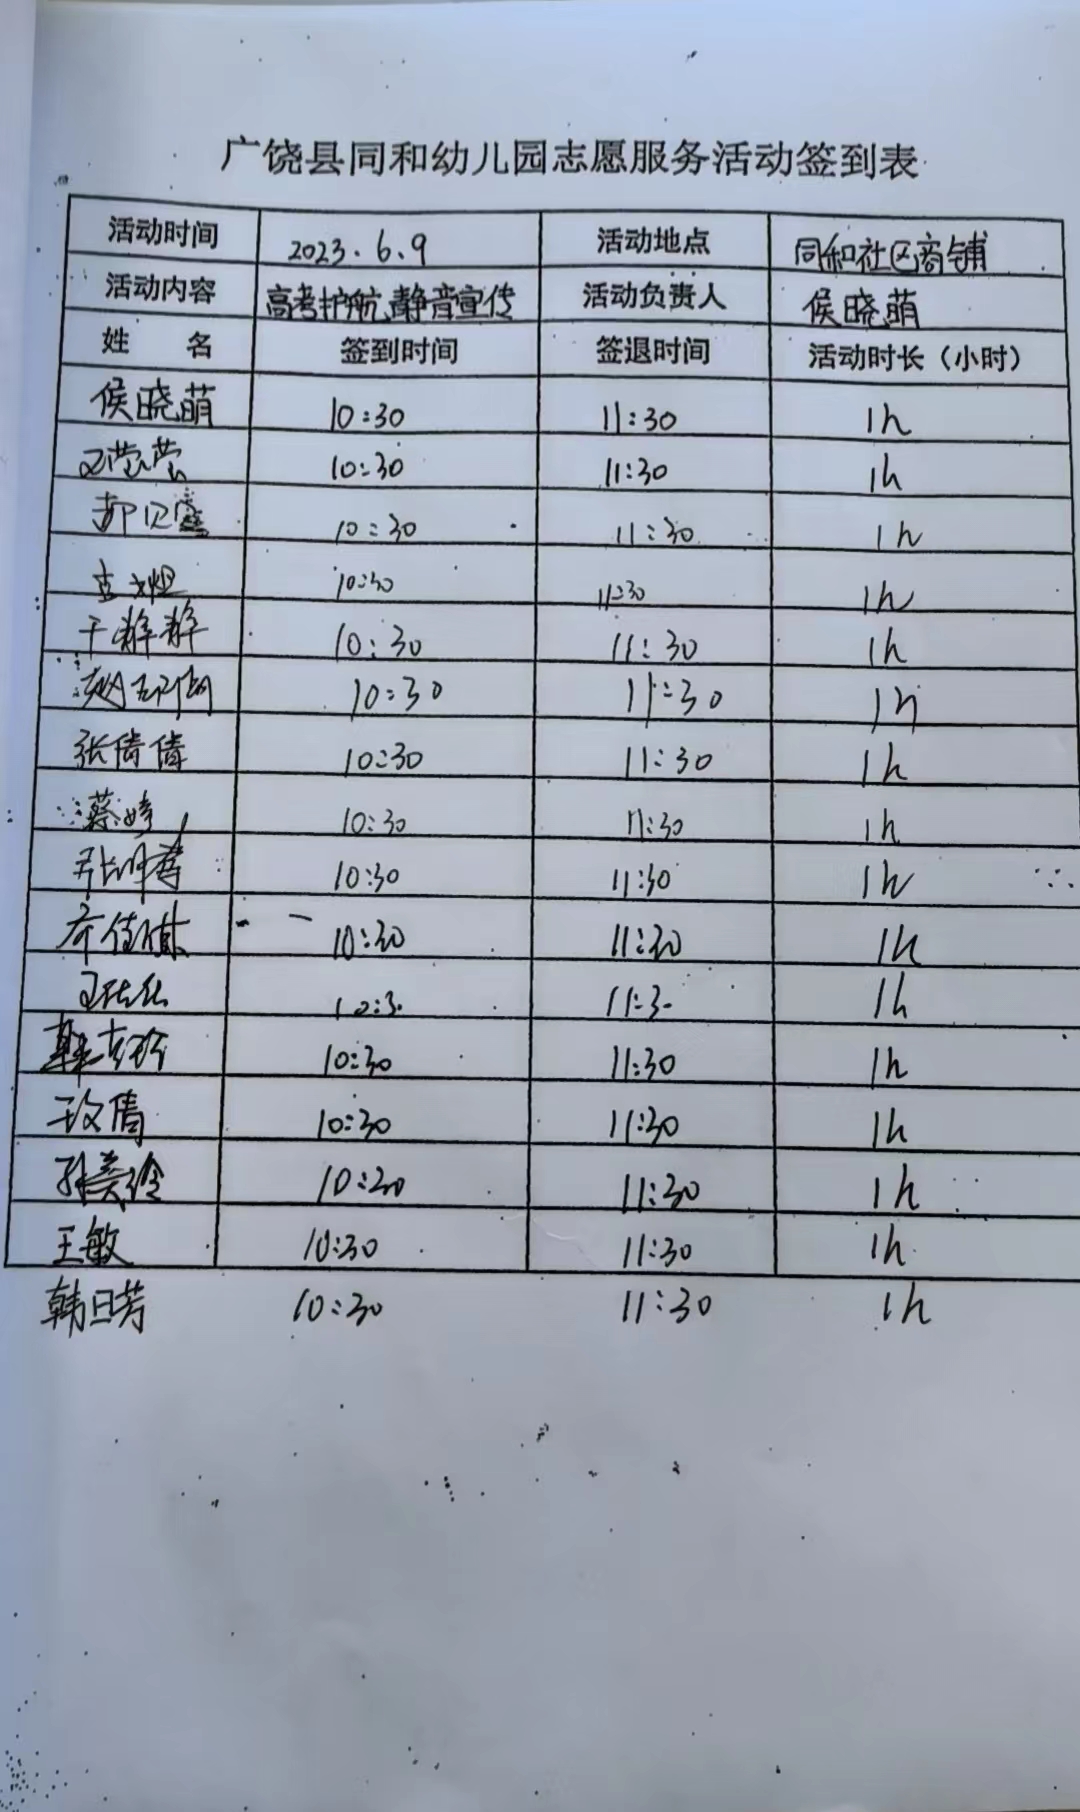 广饶县同和幼儿园志愿服务活动签到表
活动时间 2023.6.9 活动地点 同和社区商铺
活动内容 高考护航,静音宣传 活动负责人 侯晓萌
姓 名 签到时间 签退时间 活动时长（小时）
侯晓萌 10:30 11:30 1h
王莹莹 10:30 11:30 1h
10:30 11:30 1h
10:30 11:30 1h
于静静 10:30 11:30 1h
10:30 11:30 1h
张倩倩 10:30 11:30 1h
蔡婷 10:30 11:30 1h
10:30 11:30 1h
10:30 11:30 1h
10:3 11:3 1h
10:30 11:30 1h
10:30 11:30 1h
孙美玲 10:30 11:30 1h
王敏 10:30 11:30 1h
韩日芳 10:30 11:30 1h